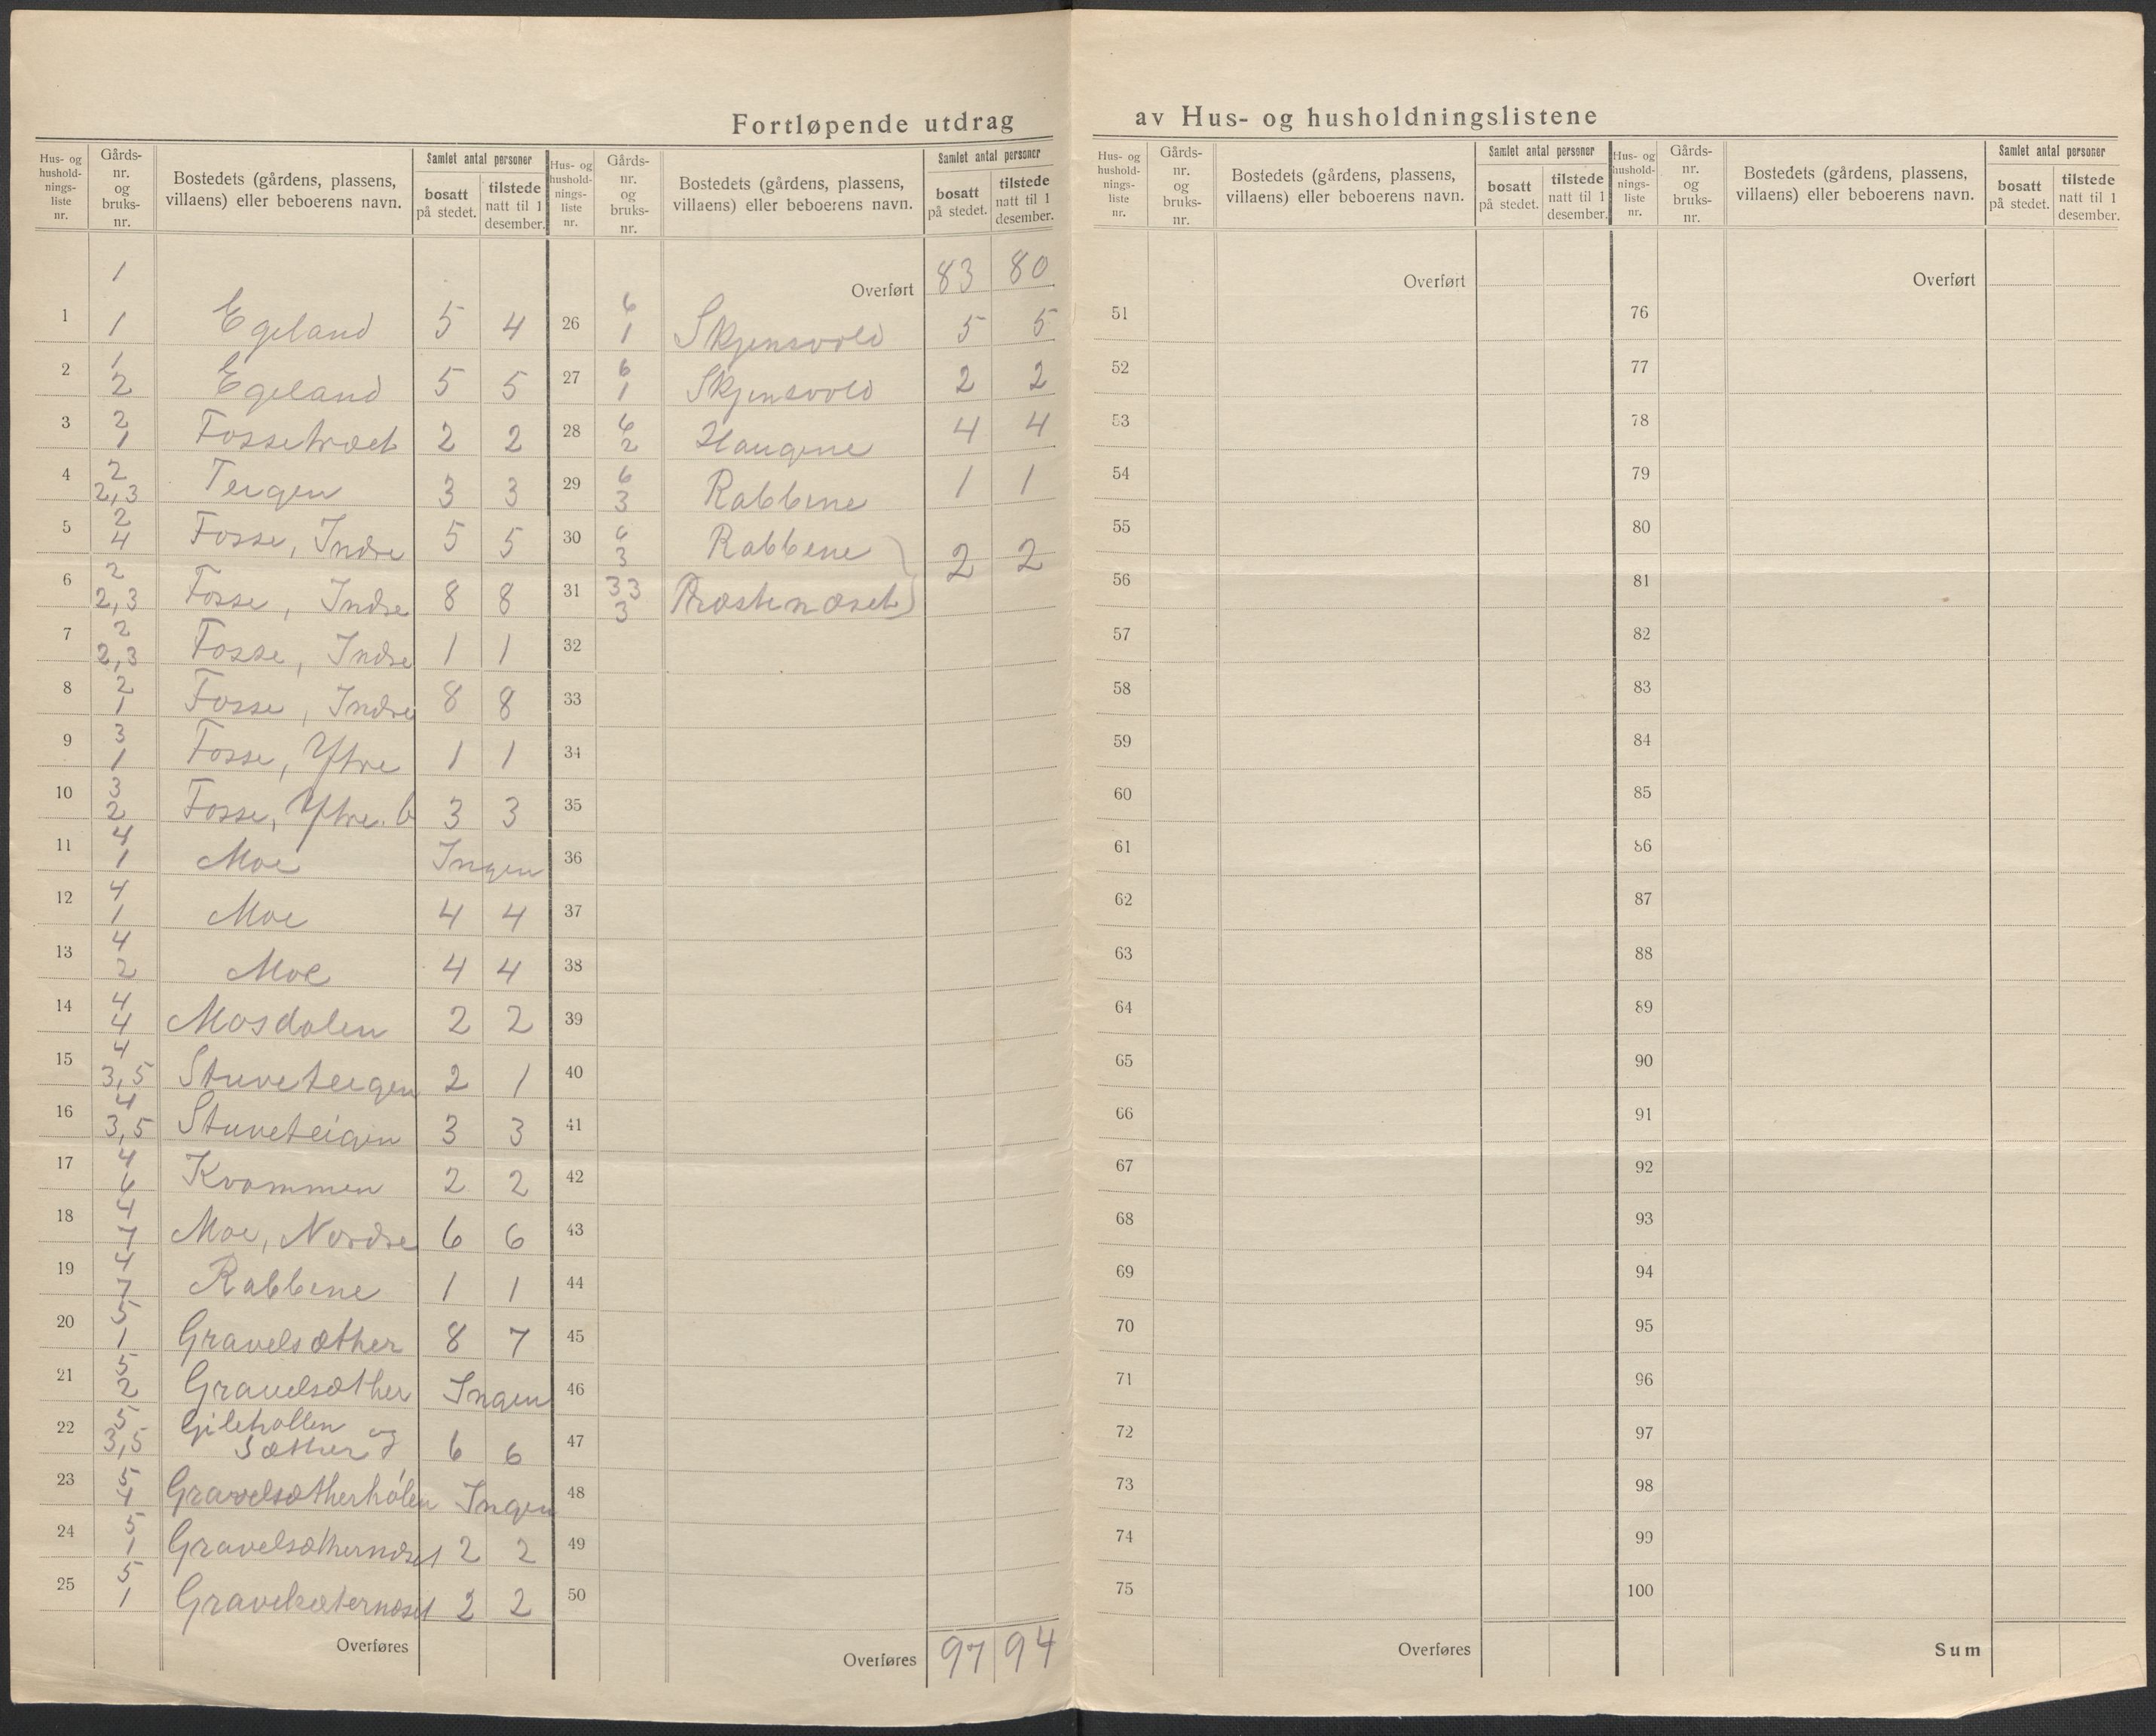 Fortløpende utdrag av Hus- og husholdningslistene
Hus- og husholdnings-liste nr. | Gårds-nr. og bruks-nr. | Bostedets (gårdens, plassens, villaens) eller beboerens navn. | Samlet antal personer | bosatt på stedet. | tilstede natt til 1 desember.
1 | 1 1 | Egeland | 5 | 4
2 | 1 2 | Egeland | 5 | 5
3 | 2 1 | Fossetræet | 2 | 2
4 | 2 2,3 | Teigen | 3 | 3
5 | 2 4 | Fosse, Indre | 5 | 5
6 | 2 2,3 | Fosse, Indre | 8 | 8
7 | 2 2,3 | Fosse, Indre | 1 | 1
8 | 2 1 | Fosse, Indre | 8 | 8
9 | 3 1 | Fosse, Ytre | 1 | 1
10 | 3 2 | Fosse, Ytre. b | 3 | 3
11 | 4 1 | Moe | Ingen
12 | 4 1 | Moe | 4 | 4
13 | 4 2 | Moe | 4 | 4
14 | 4 4 | Mosdalen | 2 | 2
15 | 4 3,5 | Stuveteigen | 2 | 1
16 | 4 3,5 | Stuveteigen | 3 | 3
17 | 4 6 | Kvammen | 2 | 2
18 | 4 7 | Moe, Nordre | 6 | 6
19 | 4 7 | Rabbene | 1 | 1
20 | 5 1 | Gravelsæther | 8 | 7
21 | 5 2 | Gravelsæther | Ingen
22 | 5 3,5 | Gilehallen og Sæther | 6 | 6
23 | 5 4 | Gravelsætherhólen | Ingen
24 | 5 1 | Gravelsæthernæset | 2 | 2
25 | 5 1 | Gravelsæternæset | 2 | 2
Overføres
Hus- og husholdnings-liste nr. | Gårds-nr. og bruks-nr. | Bostedets (gårdens, plassens, villaens) eller beboerens navn. | Samlet antal personer | bosatt på stedet. | tilstede natt til 1 desember.
Overført | 83 | 80
26 | 6 1 | Skjensvold | 5 | 5
27 | 6 1 | Skjensvold | 2 | 2
28 | 6 2 | Haugene | 4 | 4
29 | 6 3 | Rabbene | 1 | 1
30 | 6 3 | Rabbene | 2 | 2
31 | 33 3 | Præstenæset
32
33
34
35
36
37
38
39
40
41
42
43
44
45
46
47
48
49
50
Overføres | 97 | 94
Hus- og husholdnings-liste nr. | Gårds-nr. og bruks-nr. | Bostedets (gårdens, plassens, villaens) eller beboerens navn. | Samlet antal personer | bosatt på stedet. | tilstede natt til 1 desember.
Overført
51
52
53
54
55
56
57
58
59
60
61
62
63
64
65
66
67
68
69
70
71
72
73
74
75
Overføres
Hus- og husholdnings-liste nr. | Gårds-nr. og bruks-nr. | Bostedets (gårdens, plassens, villaens) eller beboerens navn. | Samlet antal personer | bosatt på stedet. | tilstede natt til 1 desember.
Overført
76
77
78
79
80
81
82
83
84
85
86
87
88
89
90
91
92
93
94
95
96
97
98
99
100
Sum